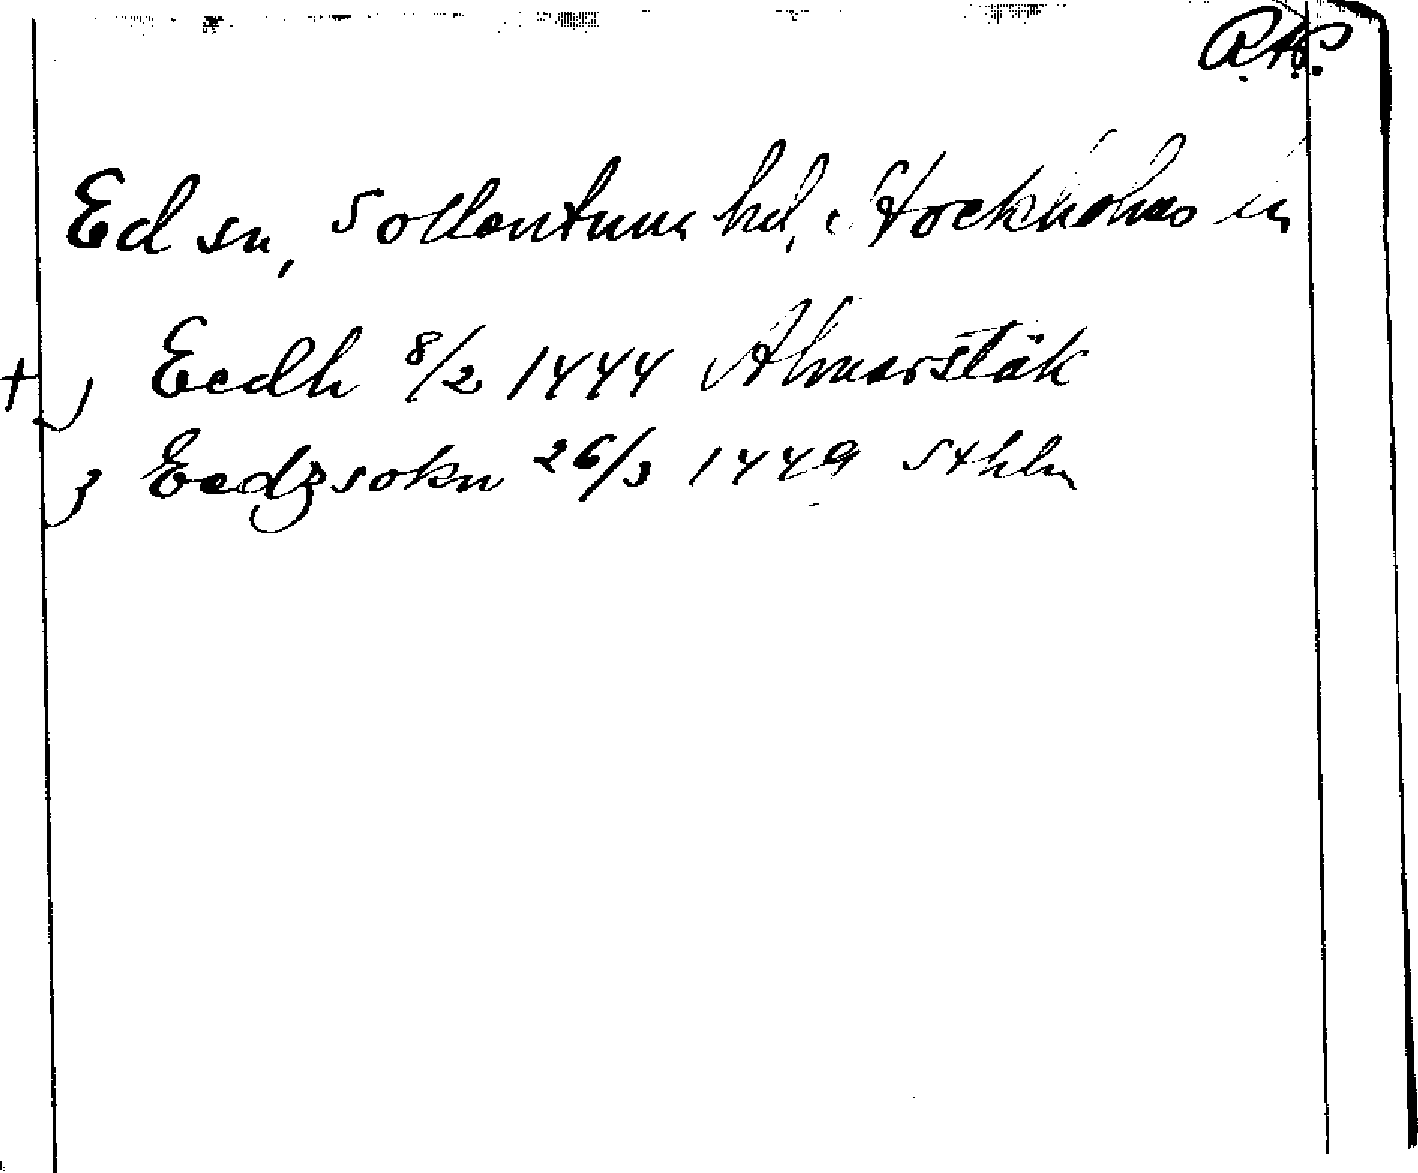 R.A.P.
Ed sn, Sollentuna hd, Stockholms län
+ j Eedh 8/2 1444 Almarstäk
j Eedzsokn 26/3 1449 Sthlm